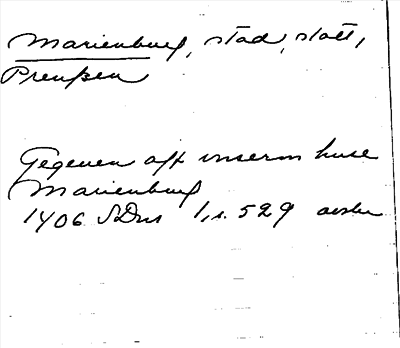 Marienburg, stad, slott,
Preußen
Gegeven off unserm huse
Marienburg
1406 SDns 1, s. 529